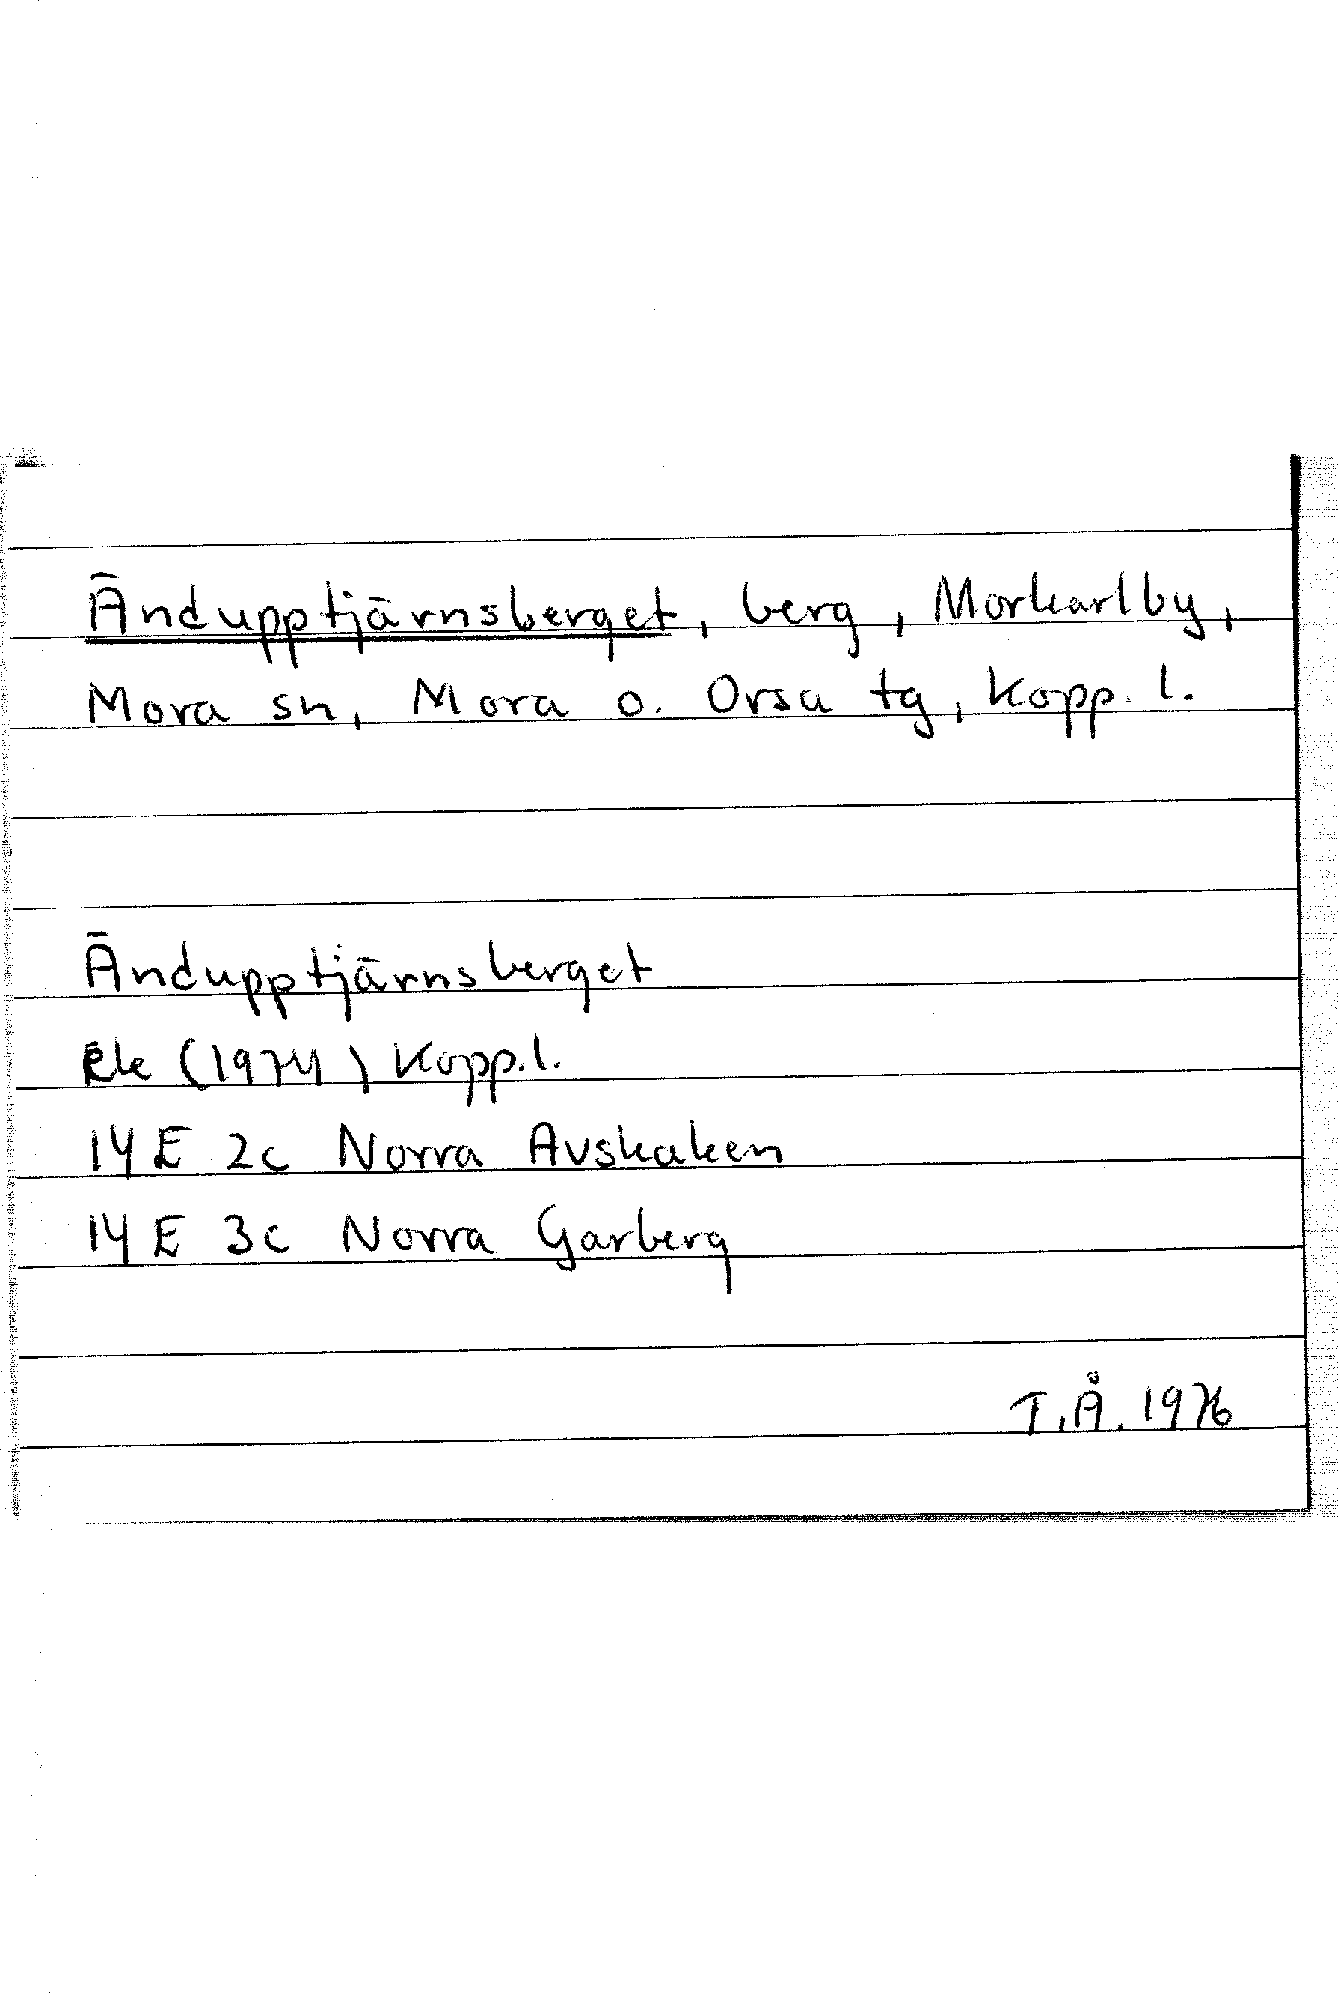 Ändupptjärnsberget, berg, Morkarlby,
Mora sn, Mora o. Orsa tg, Kopp. l.
Ändupptjärnsberget
Ek (1974) Kopp.l.
14 E 2c Norra Avskaken
14 E 3c Norra Garberg
T.Å. 1976